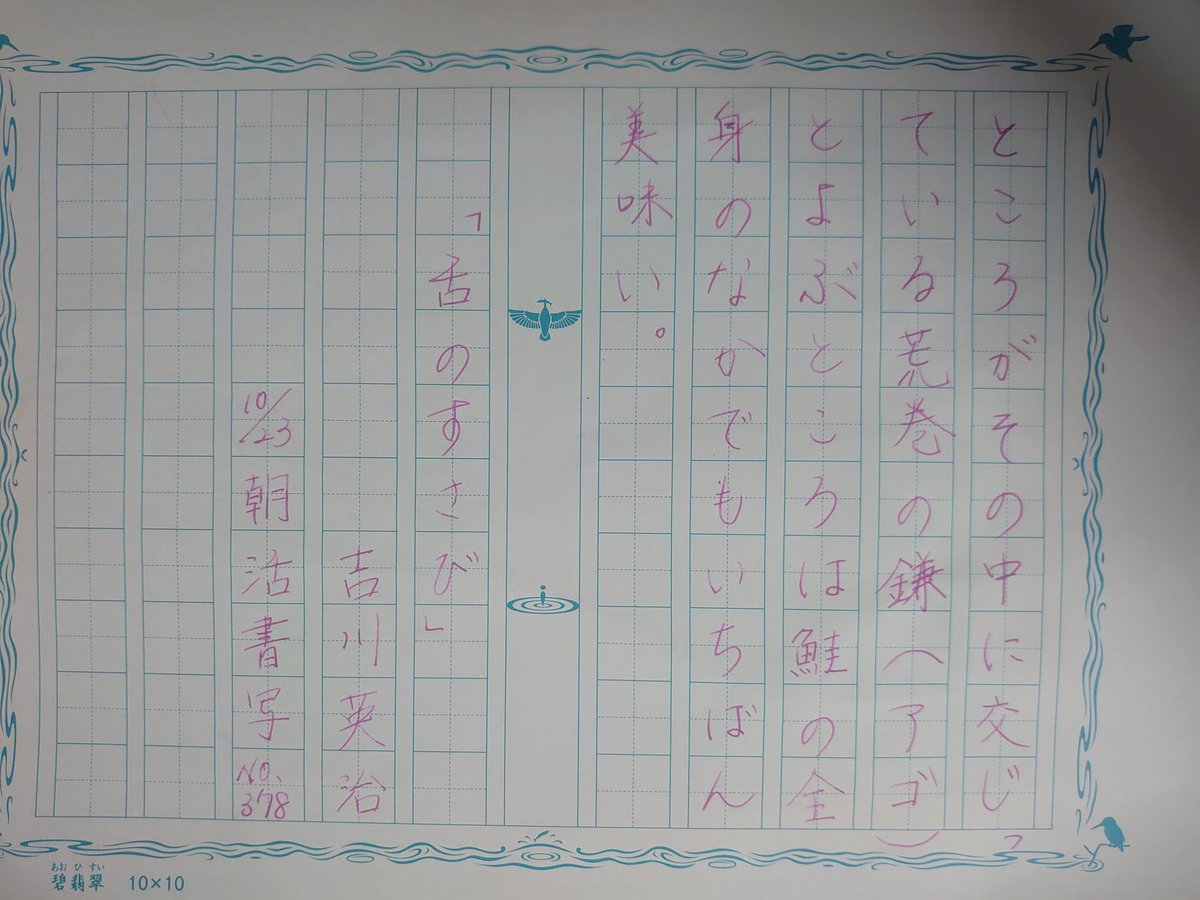 ところがその中に交じっ
ている荒巻の鎌（アゴ）
とよぶところは鮭の全
身のなかでもいちばん
美味い。
「舌のすさび」
吉川英治
10/23朝活書写No.378
あおひすい
碧翡翠 10×10